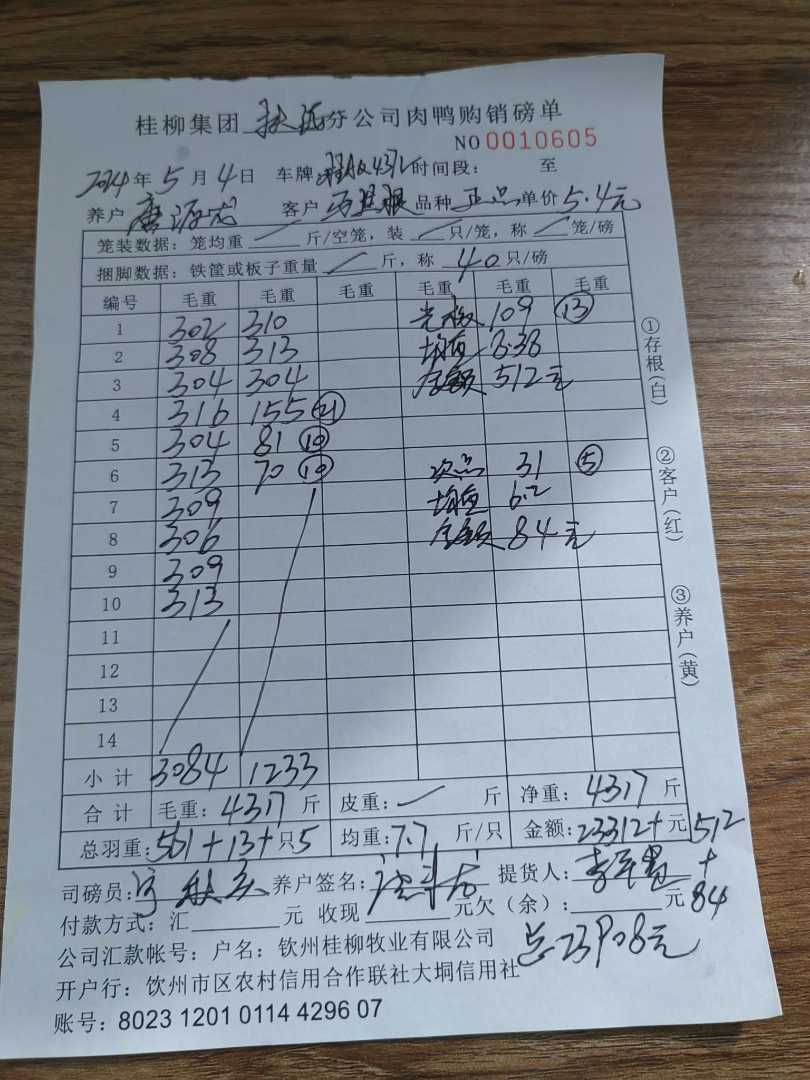 桂柳集团 分公司肉鸭购销磅单
NO 0010605
2024年5月4日 车牌 时间段: 至
养户 唐源龙 客户 品种 正品 单价 5.4元
笼装数据: 笼均重 / 斤/空笼, 装 / 只/笼, 称 / 笼/磅
捆脚数据: 铁筐或板子重量 / 斤, 称 40 只/磅
编号 毛重 毛重 毛重 毛重 毛重 毛重
1 302 310 109 ⑬
2 308 313 均重 8.38
3 304 304 金额 512元
4 316 155 ㉑
5 304 81 ⑩
6 313 70 ⑩ 次品 31 ⑤
7 309 均重 6.2
8 306 金额 84元
9 309
10 313
11
12
13
14
小计 3084 1233
合计 毛重: 4317 斤 皮重: / 斤 净重: 4317 斤
总羽重: 561+13+只5 均重: 7.7 斤/只 金额: 23312+元 512
+
84
司磅员: 养户签名: 提货人:
付款方式: 汇 元 收现 元 欠(余): 元
公司汇款帐号: 户名: 钦州桂柳牧业有限公司 总23908元
开户行: 钦州市区农村信用合作联社大垌信用社
账号: 8023 1201 0114 4296 07
①存根(白)
②客户(红)
③养户(黄)